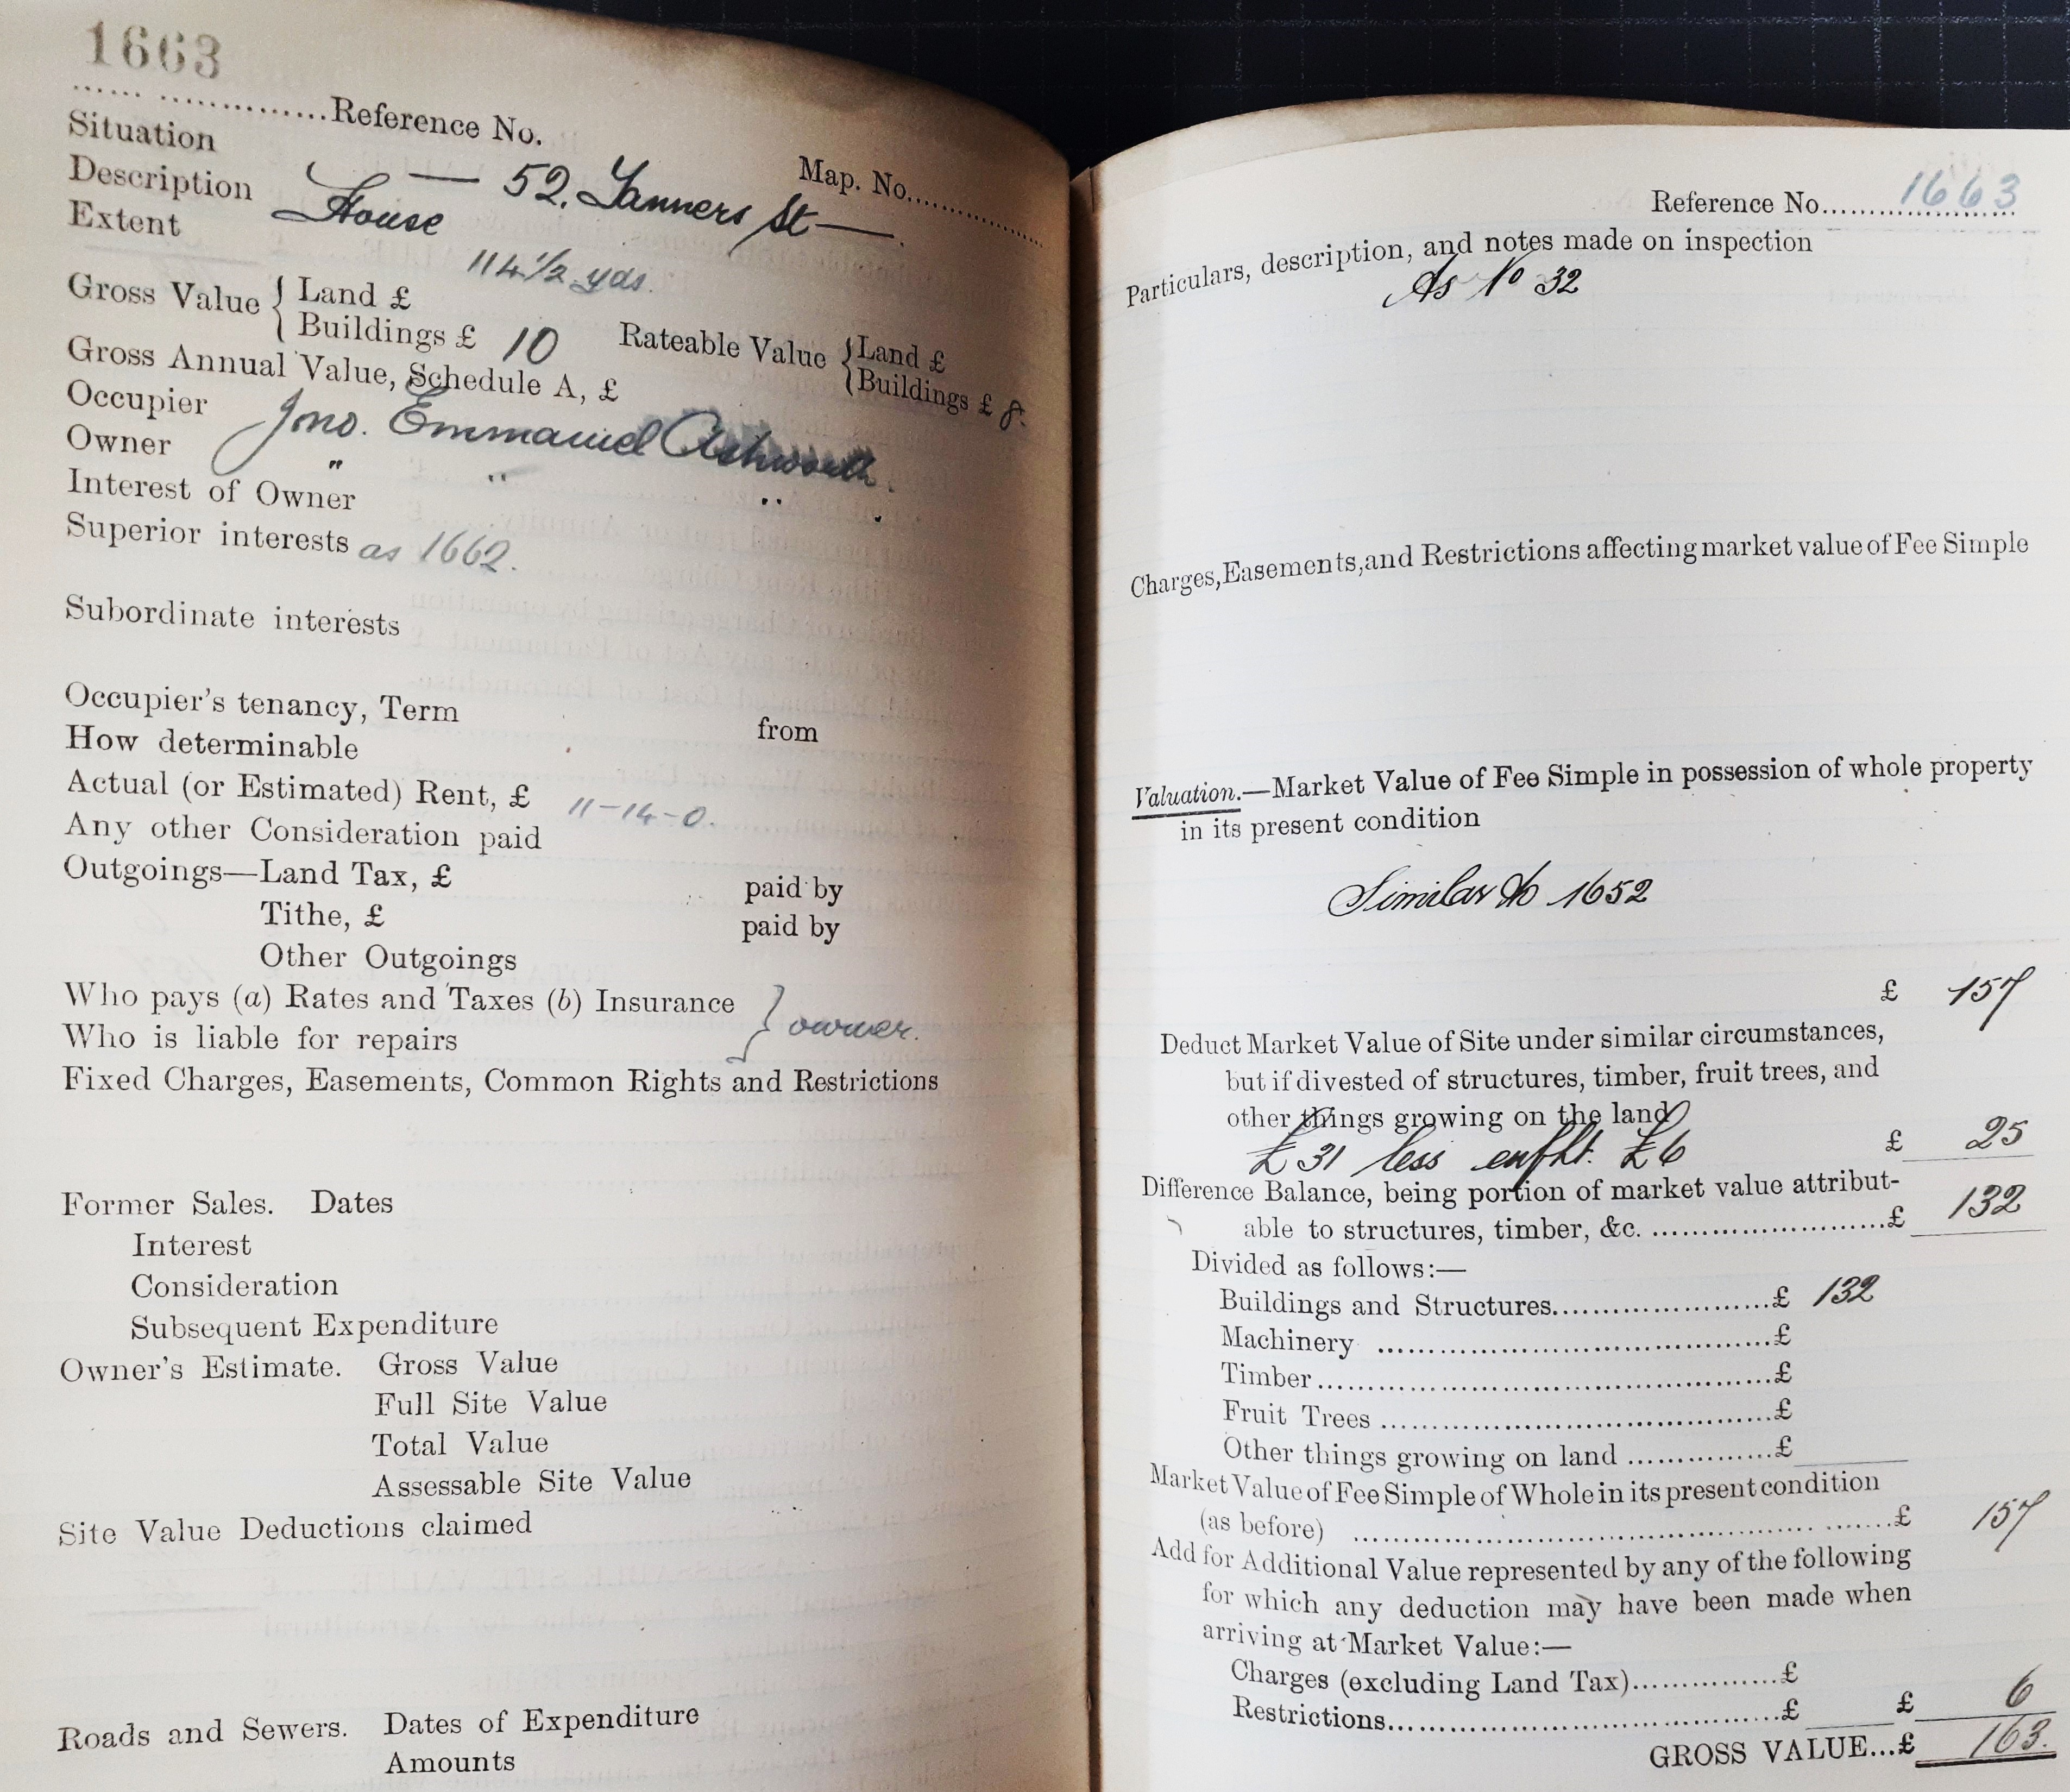 1663
.................Reference No.
Map. No...............
Situation — 52. Tanners St —.
Description House
Extent 114 1/2 yds.
Gross Value { Land £
Buildings £ 10
Rateable Value { Land £
Buildings £ 8.
Gross Annual Value, Schedule A, £
Occupier Jno. Emmanuel Ashworth.
Owner " " " "
Interest of Owner
Superior interests as 1662.
Subordinate interests
Occupier's tenancy, Term from
How determinable
Actual (or Estimated) Rent, £ 11-14-0.
Any other Consideration paid
Outgoings—Land Tax, £ paid by
Tithe, £ paid by
Other Outgoings
Who pays (a) Rates and Taxes (b) Insurance } owner.
Who is liable for repairs
Fixed Charges, Easements, Common Rights and Restrictions
Former Sales. Dates
Interest
Consideration
Subsequent Expenditure
Owner's Estimate. Gross Value
Full Site Value
Total Value
Assessable Site Value
Site Value Deductions claimed
Roads and Sewers. Dates of Expenditure
Amounts
Reference No. 1663
Particulars, description, and notes made on inspection
As No 32
Charges, Easements, and Restrictions affecting market value of Fee Simple
Valuation.—Market Value of Fee Simple in possession of whole property
in its present condition
Similar to 1652
£ 157
Deduct Market Value of Site under similar circumstances,
but if divested of structures, timber, fruit trees, and
other things growing on the land
£31 less enfht. £6 £ 25
Difference Balance, being portion of market value attribut-
able to structures, timber, &c. ........................£ 132
Divided as follows:—
Buildings and Structures.......................£ 132
Machinery ..........................................£
Timber................................................£
Fruit Trees ..........................................£
Other things growing on land ...............£
Market Value of Fee Simple of Whole in its present condition
(as before) ..........................................................£ 157
Add for Additional Value represented by any of the following
for which any deduction may have been made when
arriving at Market Value:—
Charges (excluding Land Tax)................£
Restrictions..........................................£ £ 6
GROSS VALUE...£ 163.